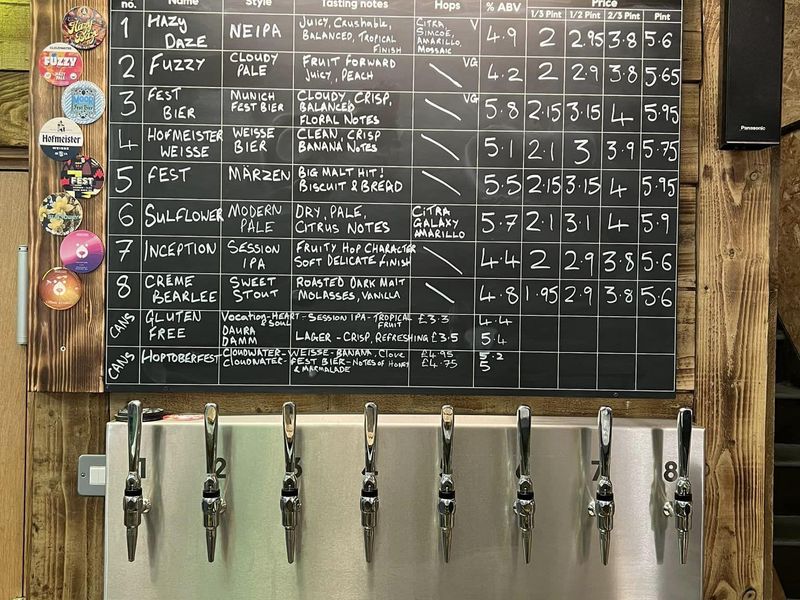 no. Name Style Tasting notes Hops % ABV Price
1/3 Pint 1/2 Pint 2/3 Pint Pint
1 HAZY DAZE NEIPA JUICY, CRUSHABLE, BALANCED, TROPICAL FINISH CITRA, SIMCOE, AMARILLO, MOSAIC V 4.9 2 2.95 3.8 5.6
2 FUZZY CLOUDY PALE FRUIT FORWARD JUICY, PEACH VG 4.2 2 2.9 3.8 5.65
3 FEST BIER MUNICH FEST BIER CLOUDY, CRISP, BALANCED FLORAL NOTES VG 5.8 2.15 3.15 4 5.95
4 HOFMEISTER WEISSE WEISSE BIER CLEAN, CRISP BANANA NOTES 5.1 2.1 3 3.9 5.75
5 FEST MÄRZEN BIG MALT HIT! BISCUIT & BREAD 5.5 2.15 3.15 4 5.95
6 SULFLOWER MODERN PALE DRY, PALE, CITRUS NOTES CITRA GALAXY AMARILLO 5.7 2.1 3.1 4 5.9
7 INCEPTION SESSION IPA FRUITY HOP CHARACTER SOFT DELICATE FINISH 4.4 2 2.9 3.8 5.6
8 CRÈME BEARLEE SWEET STOUT ROASTED DARK MALT MOLASSES, VANILLA 4.8 1.95 2.9 3.8 5.6
CANS GLUTEN FREE Vocation-HEART & SOUL - SESSION IPA - TROPICAL FRUIT £3.3 4.4
DAURA DAMM LAGER - CRISP, REFRESHING £3.5 5.4
CANS HOPTOBERFEST CLOUDWATER - WEISSE - BANANA, Clove £4.95 5.2
CLOUDWATER - FEST BIER - NOTES OF HONEY & MARMALADE £4.75 5
FUZZY
Hofmeister
WEISSE
FEST
Panasonic
1 2 3 7 8